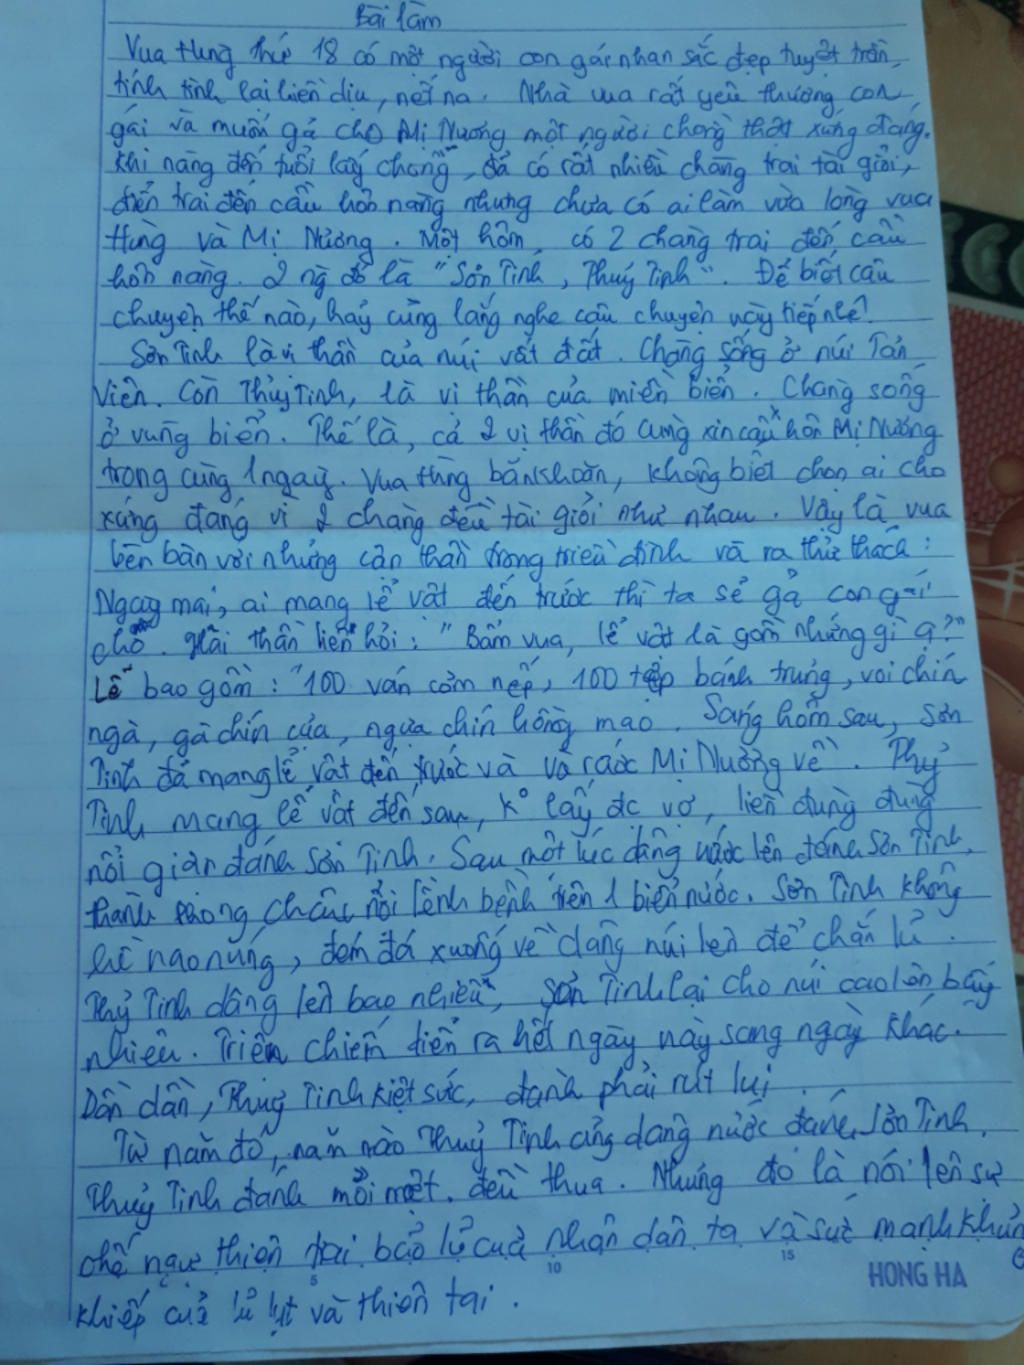 Bài làm
Vua Hùng thứ 18 có một người con gái nhan sắc đẹp tuyệt trần,
tính tình lại hiền dịu, nết na. Nhà vua rất yêu thương con
gái và muốn gả cho Mị Nương một người chồng thật xứng đáng.
Khi nàng đến tuổi lấy chồng, đã có rất nhiều chàng trai tài giỏi,
điển trai đến cầu hôn nàng nhưng chưa có ai làm vừa lòng vua
Hùng và Mị Nương. Một hôm, có 2 chàng trai đến cầu
hôn nàng. 2 ng đó là "Sơn Tinh, Thuỷ Tinh". Để biết câu
chuyện thế nào, hãy cùng lắng nghe câu chuyện này tiếp nhé!
Sơn Tinh là vị thần của núi đất. Chàng sống ở núi Tản
Viên. Còn Thủy Tinh, là vị thần của miền biển. Chàng sống
ở vùng biển. Thế là, cả 2 vị thần đó cùng xin cầu hôn Mị Nương
trong cùng 1 ngày. Vua Hùng băn khoăn, không biết chọn ai cho
xứng đáng vì 2 chàng đều tài giỏi như nhau. Vậy là vua
bèn bàn với những cận thần trong triều đình và ra thử thách:
Ngày mai, ai mang lễ vật đến trước thì ta sẽ gả con gái
cho. Hai thần liền hỏi: "Bẩm vua, lễ vật là gồm những gì ạ?"
Lễ bao gồm: "100 ván cơm nếp, 100 tệp bánh trưng, voi chín
ngà, gà chín cựa, ngựa chín hồng mao. Sáng hôm sau, Sơn
Tinh đã mang lễ vật đến trước và rước Mị Nương về. Thuỷ
Tinh mang lễ vật đến sau, k° lấy đc vợ, liền đùng đùng
nổi giận đánh Sơn Tinh. Sau một lúc dâng nước lên đánh Sơn Tinh,
thành Phong Châu nổi lềnh bềnh trên 1 biển nước. Sơn Tinh không
hề nao núng, đem đá xuống về dâng núi lên để chắn lũ.
Thuỷ Tinh dâng lên bao nhiêu, Sơn Tinh lại cho núi cao lên bấy
nhiêu. Triến chiến diễn ra hết ngày này sang ngày khác.
Dần dần, Thuỷ Tinh kiệt sức, đành phải rút lui.
Từ năm đó, năm nào Thuỷ Tinh cũng dâng nước đánh Sơn Tinh.
Thuỷ Tinh đánh mỏi mệt. đều thua. Nhưng đó là nói lên sự
chế ngự thiên tai bảo lũ của nhân dân ta và sức mạnh khủng
khiếp của lũ lụt và thiên tai.
5 10 15
HONG HA